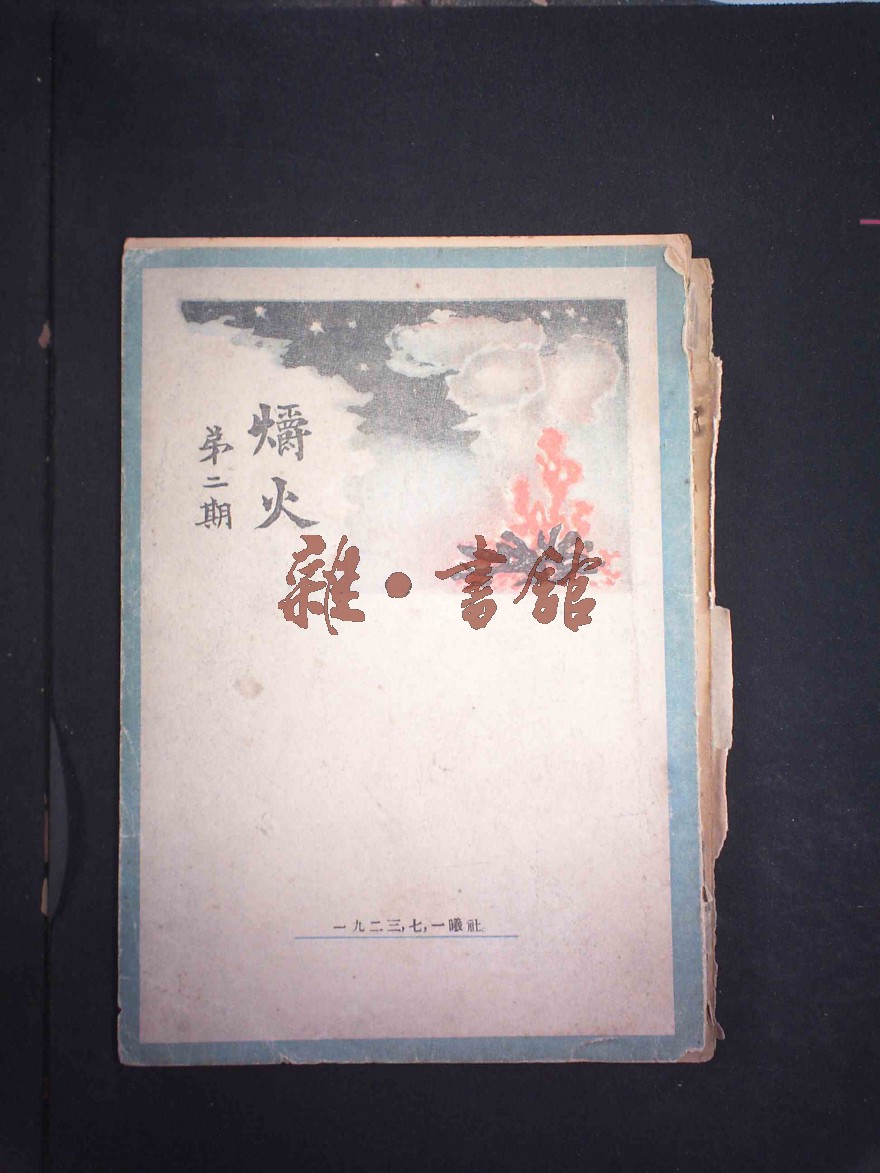 爝火
第二期
雜·書館
一九二三,七,一曦社